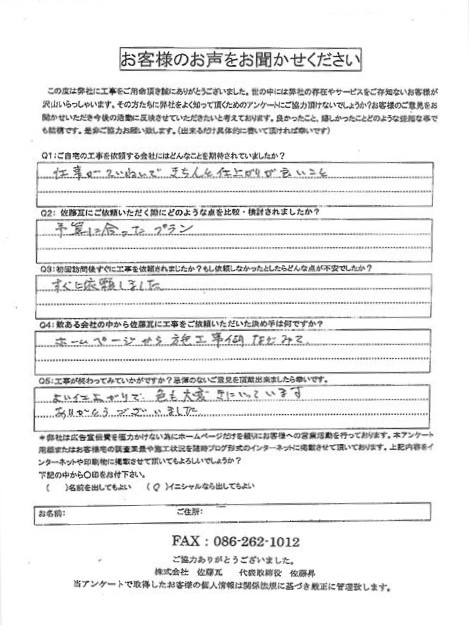 お客様のお声をお聞かせください
この度は弊社に工事をご用命頂き誠にありがとうございました。世の中には弊社の存在やサービスをご存知ないお客様が
沢山いらっしゃいます。その方たちに弊社をよく知って頂くためのアンケートにご協力頂けないでしょうか?お客様のご意見をお
聞かせいただき今後の活動に反映させていただきたいと考えております。良かったこと、嬉しかったことどのような些細な事で
も結構です。是非ご協力お願い致します。(出来るだけ具体的に書いて頂ければ幸いです)
Q1:ご自宅の工事を依頼する会社にはどんなことを期待されていましたか?
仕事がていねいで きちんと仕上がりが良いこと
Q2: 佐藤瓦にご依頼いただく際にどのような点を比較・検討されましたか?
予算に合ったプラン
Q3:初回訪問後すぐに工事を依頼されましたか?もし依頼しなかったとしたらどんな点が不安でしたか?
すぐに依頼しました
Q4:数ある会社の中から佐藤瓦に工事をご依頼いただいた決め手は何ですか?
ホームページから 施工事例などみて、
Q5:工事が終わってみていかがですか?忌憚のないご意見を頂戴出来ましたら幸いです。
よい仕上がりで、色も大変 きにいっています
ありがとうございました
*弊社は広告宣伝費を極力かけない為にホームページだけを頼りにお客様への営業活動を行っております。本アンケート
用紙またはお客様宅の調査風景や施工状況を随時ブログ形式のインターネットに掲載させて頂いております。上記内容をイ
ンターネットや印刷物に掲載させて頂いてもよろしいでしょうか?
下記の中から〇印をお付下さい。
( )名前を出してもよい (〇)イニシャルなら出してもよい
お名前: ご住所:
FAX:086-262-1012
ご協力ありがとうございました。
株式会社 佐藤瓦 代表取締役 佐藤昇
当アンケートで取得したお客様の個人情報は関係法規に基づき厳正に管理致します。